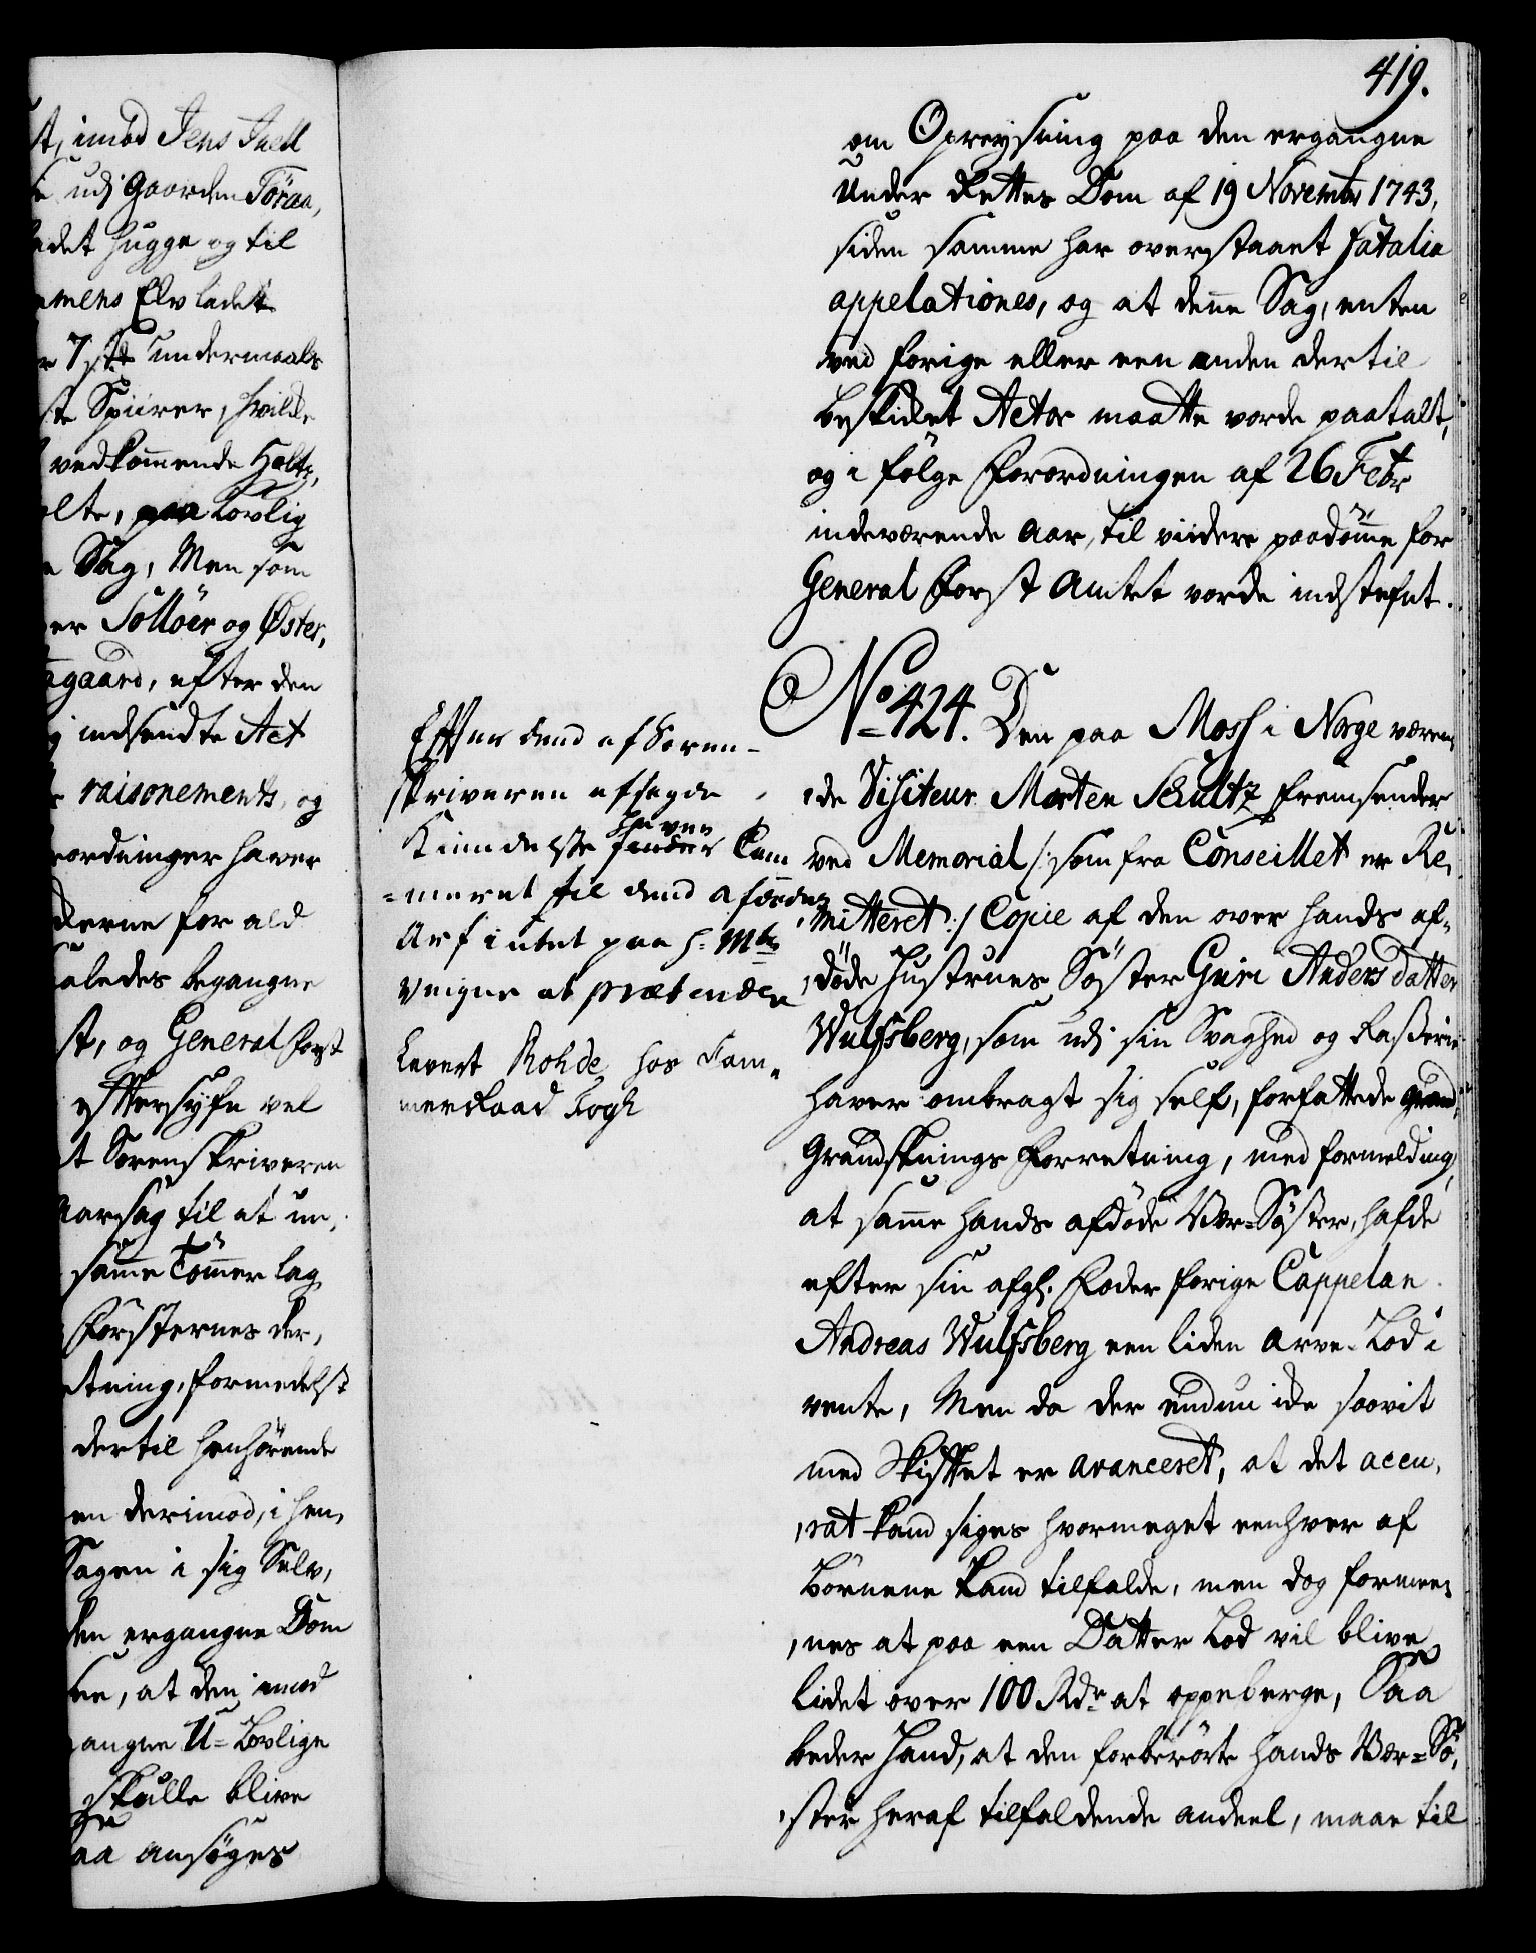 419.
st, imod Jens Juell
udj Gaarden Töraa,
ladet hugge og til
mens Elv ladet
7 undermaals
Spiirer, hvilke
vedkommende Holtz,
paa Lovlig
Sag, Men som
Solløer og Øster,
agaard, efter den
indsendte Act
raisonements, og
ordninger haver
derne for ald
aaledes begangne
st, og General Forst
Eftersyfn vel
t Sorenskriveren
Aarsag til at un,
samme Tømmer lag
Forsternes der,
tning, formedelst
dertil henhørende
en derimod, i hen,
Sagen i sig Selv,
den ergangne Dom
at den imod
gangne U=Lovlige
skulle blive
aa ansøges
om Opreysning paa den ergangne
Under Rettes Dom af 19 Novembr 1743,
siden samme har overstaaet fatalia
appelationes, og at denne Sag, enten
ved forige eller een anden dertil
beskikket Actor maatte vorde paatalt,
og i følge Forordningen af 26 Febr
indeværende Aar, til videre paadømme for
General Forst Amtet vorde indstefnt.
No 424. Den paa Moss i Norge væren,
,de Visiteur Morten Schultz fremsender
ved Memorial /:som fra Conseillet er Re,
,mitteret:/ Copie af den over hands af,
,døde Hustrues Søster Guri Anders datter
Wulfsberg, som udj sin Svaghed og Raßerie
haver ombragt sig self, forfattede
Grandsknings Forretning, med formelding,
at samme hands afdøde Vær=Søster, hafde
efter sin afgl. Fader forige Cappelan
Andreas Wulfsberg een liden Arve-Lod i
vente, Men da der endnu icke saavit
med Skiftet er avanceret, at det accu,
,rat kand siges hvormeget eenhver af
Børnene kand tilfalde, men dog formee,
,nes at paa een Datter Lod vil blive
lidet over 100 Rdr at oppeberge, Saa
beder Hand, at den forberørte hands Vær=Sø,
,ster heraf tilfaldende andeel, maae til
Efter dend af Soren-
skriveren afsagde
Kiendelse haver Cam
=meret til dend
Arf intet paa H: Mts
Vegne at prætendere
Levert Rohde hos Cam,
merRaad Kogh